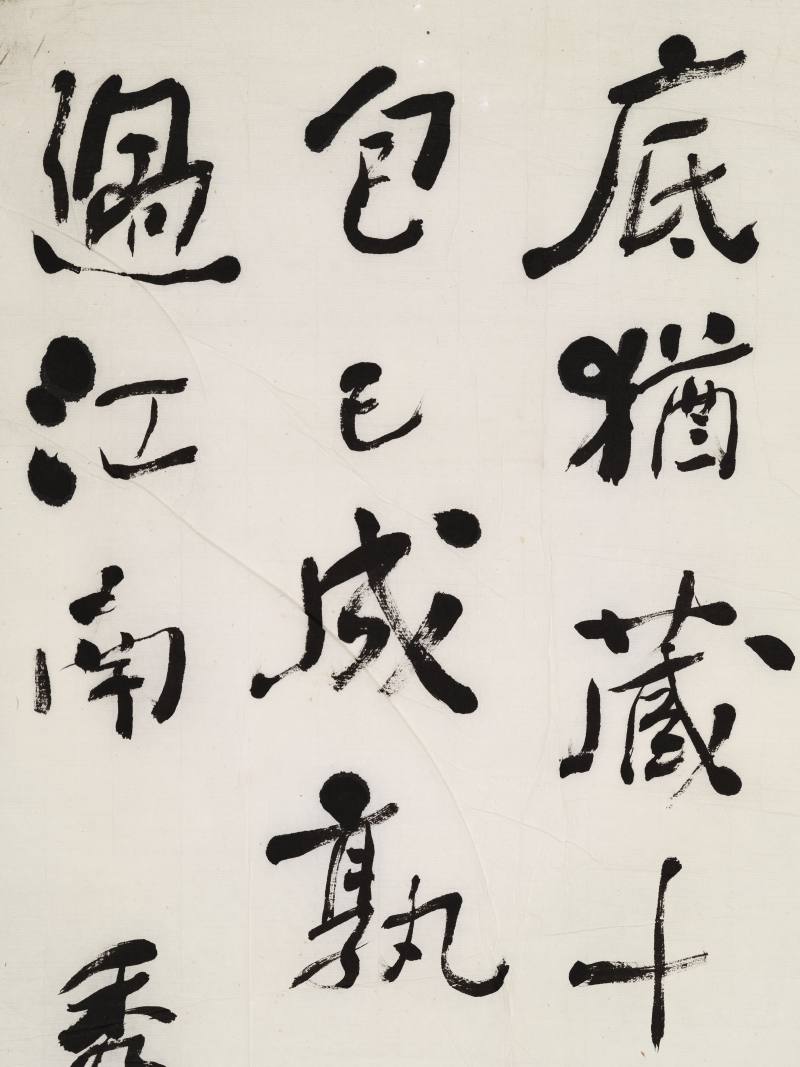 底猶藏十
包已成孰
過江南秀